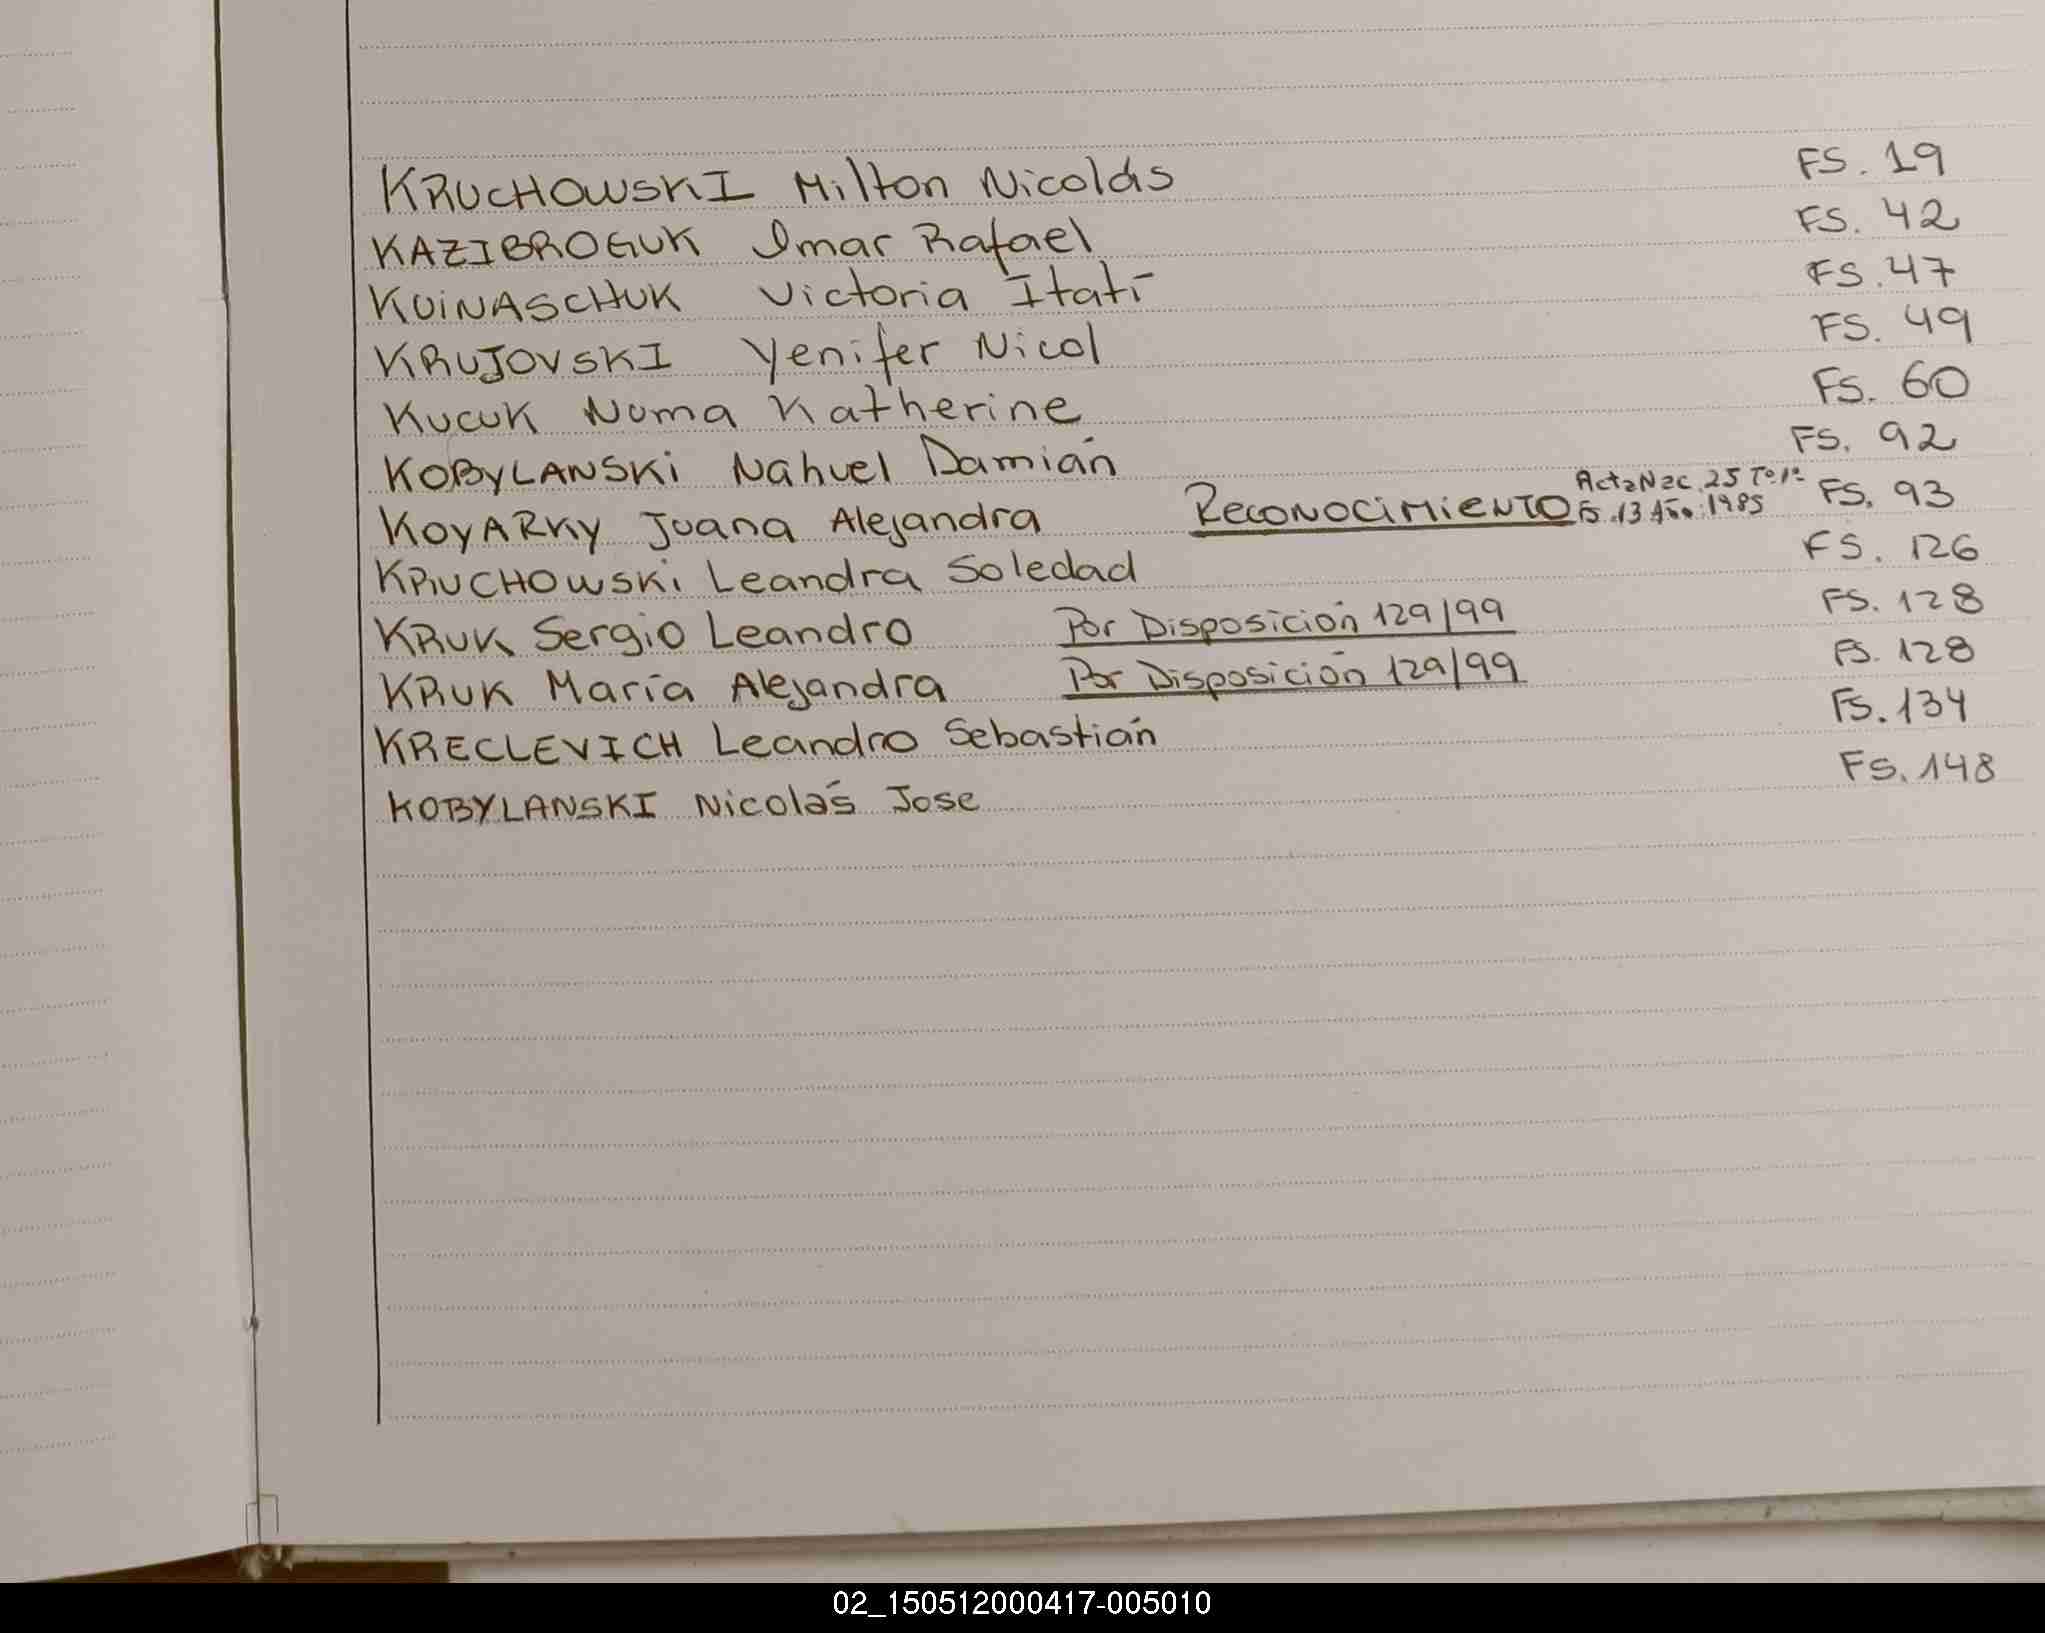 KRUCHOWSKI Milton Nicolás FS. 19
KAZIBROGUK Imar Rafael FS. 42
KUINASCHUK Victoria Itatí FS. 47
KRUJOVSKI Yenifer Nicol FS. 49
KUCUK Numa Katherine FS. 60
KOBYLANSKI Nahuel Damián FS. 92
KOYARKY Juana Alejandra RECONOCIMIENTO Acta Nac. 25 Tº 1º FS. 13 Año: 1985 FS. 93
KRUCHOWSKI Leandra Soledad FS. 126
KRUK Sergio Leandro Por Disposición 129/99 FS. 128
KRUK María Alejandra Por Disposición 129/99 FS. 128
KRECLEVICH Leandro Sebastián FS. 134
KOBYLANSKI Nicolás Jose FS. 148
02_150512000417-005010